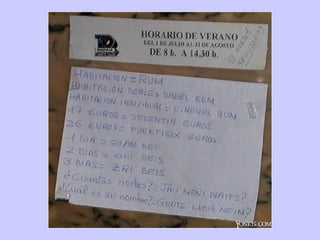 HORARIO DE VERANO
DEL 1 DE JULIO AL 31 DE AGOSTO
DE 8 h. A 14,30 h.
HABITACION = RUM
HABITACION DOBLE = DABEL RUM
HABITACION INDIVIDUAL = SINGUEL RUM
17 EUROS = SEVENTIN EUROS
26 EUROS = TUENTISIX EUROS
1 DIA = GUAN DEI
2 DIAS = CHU DEIS
3 DIAS = ZRI DEIS
¿CUANTAS NOCHES? = JAU MENI NAITS?
¿CUÁL ES SU NOMBRE? = GUOTS LLOR NEIN?